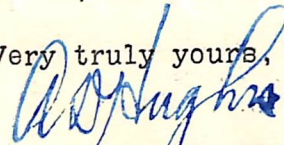 Very truly yours,
A D Hughes